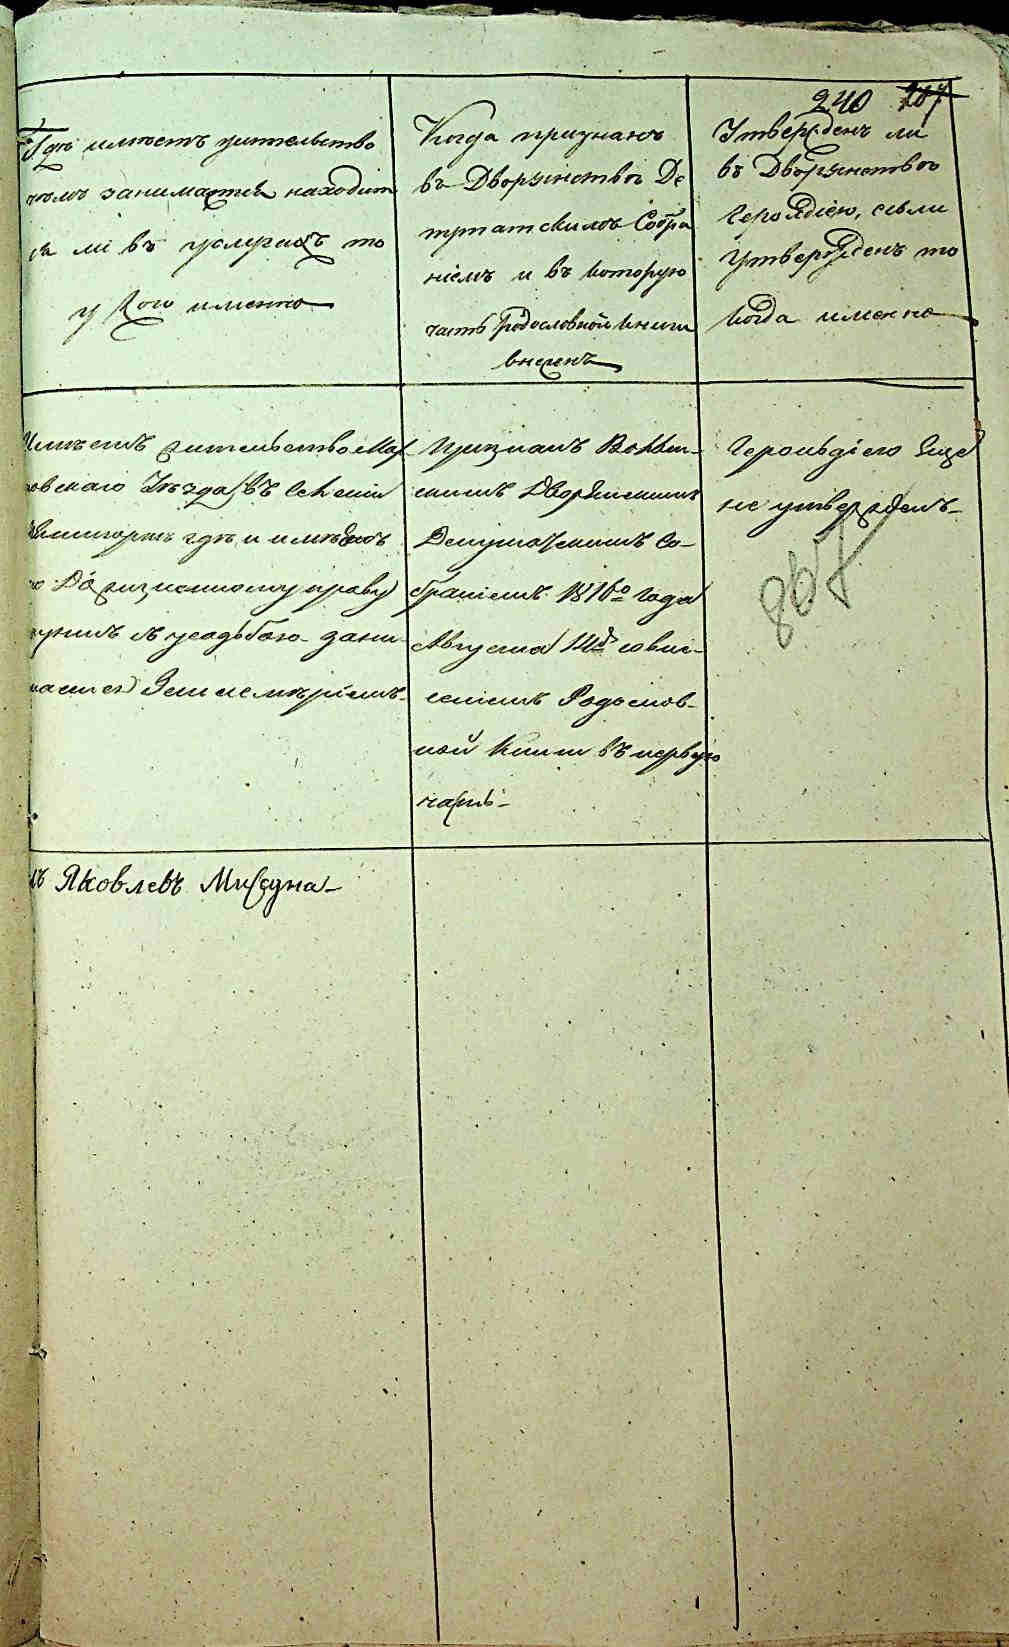 240 207
Гдѣ имѣетъ жительство
чѣмъ занимается находит
ся ли въ услугахъ то
у кого именно
Когда признанъ
въ Дворянствѣ Де
путатскимъ Собра
ніемъ и въ которую
часть родословной книги
внесенъ
Утвержденъ ли
въ Дворянствѣ
Герольдіею, если
утвержденъ то
когда именно
Имѣетъ жительство Мах
новскаго Уѣзда въ селеніи
гдѣ и имѣетъ
по праву
съ усадьбою зани
мается Земледѣліемъ
Признанъ Волын-
скимъ Дворянскимъ
Депутатскимъ Со-
браніемъ 1816го года
Августа 14д со вне-
сеніемъ Родослов-
ной книги въ первую
часть
Герольдіею Еще
не утвержденъ
867
ъ Яковлевъ